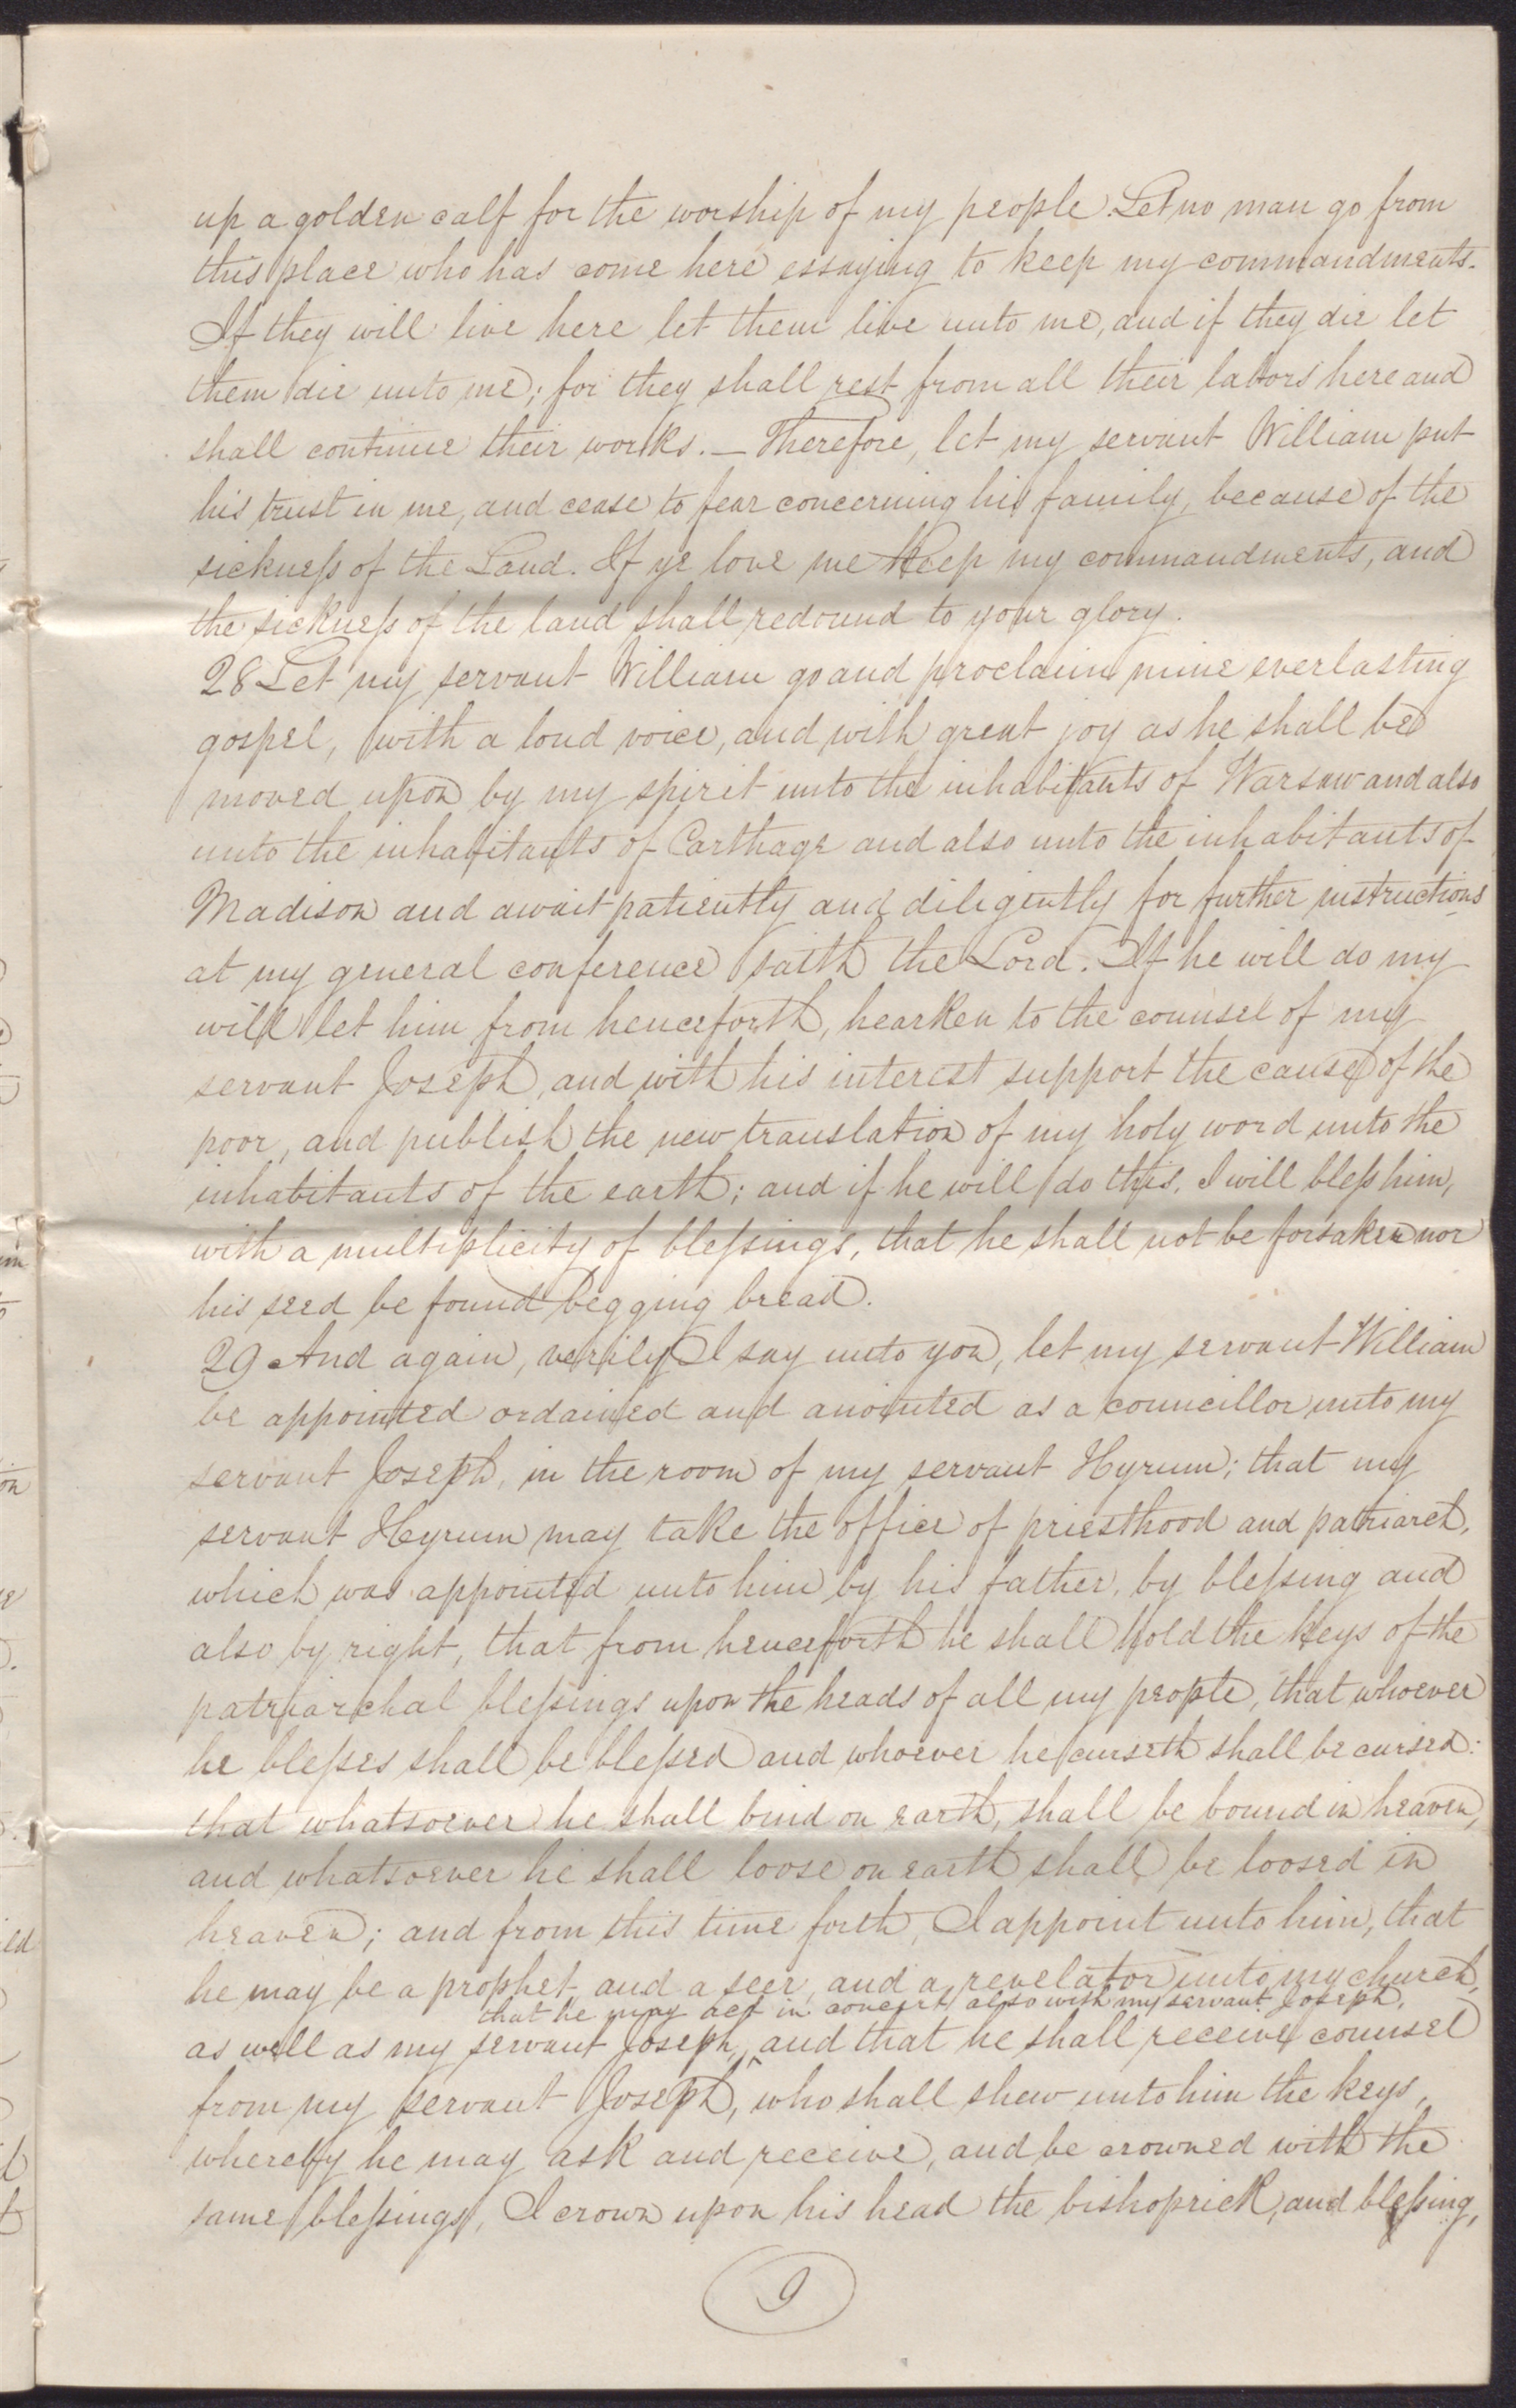 up a golden calf for the worship of my people. Let no man go from
this place who has come here essaying to keep my commandments.
If they will live here let them live unto me, and if they die let
them die unto me; for they shall rest from all their labors here and
shall continue their works. — Therefore, let my servant William put
his trust in me, and cease to fear concerning his family, because of the
sickneſs of the Land. If ye love me keep my commandments, and
the sickneſs of the land shall redound to your glory.
28 Let my servant William go and proclaim mine everlasting
gospel, with a loud voice, and with great joy as he shall be
moved upon by my spirit unto the inhabitants of Warsaw and also
unto the inhabitants of Carthage and also unto the inhabitants of
Madison and await patiently and diligently for further instructions
at my general conference saith the Lord. If he will do my
will let him from henceforth, hearken to the counsel of my
servant Joseph, and with his interest support the cause of the
poor, and publish the new translation of my holy word unto the
inhabitants of the earth; and if he will do this, I will bleſs him,
with a multiplicity of bleſsings, that he shall not be forsaken nor
his seed be found begging bread.
29 And again, verily I say unto you, let my servant William
be appointed ordained and anointed as a councillor unto my
servant Joseph, in the room of my servant Hyrum; that my
servant Hyrum may take the office of priesthood and patriarch,
which was appointed unto him by his father, by bleſsing and
also by right, that from henceforth he shall hold the keys of the
patriarchal bleſsings upon the heads of all my people, that whoever
he bleſses shall be bleſsed and whoever he curseth shall be cursed:
that whatsoever he shall bind on earth, shall be bound in heaven,
and whatsoever he shall loose on earth shall be loosed in
heaven; and from this time forth, I appoint unto him, that
he may be a prophet and a seer, and a revelator unto my church,
that he may act in concert also with my servant Joseph,
as well as my servant Joseph, ^ and that he shall receive counsel
from my servant Joseph, who shall shew unto him the keys,
whereby he may ask and receive, and be crowned with the
same bleſsings, I crown upon his head the bishoprick, and bleſsing,
9